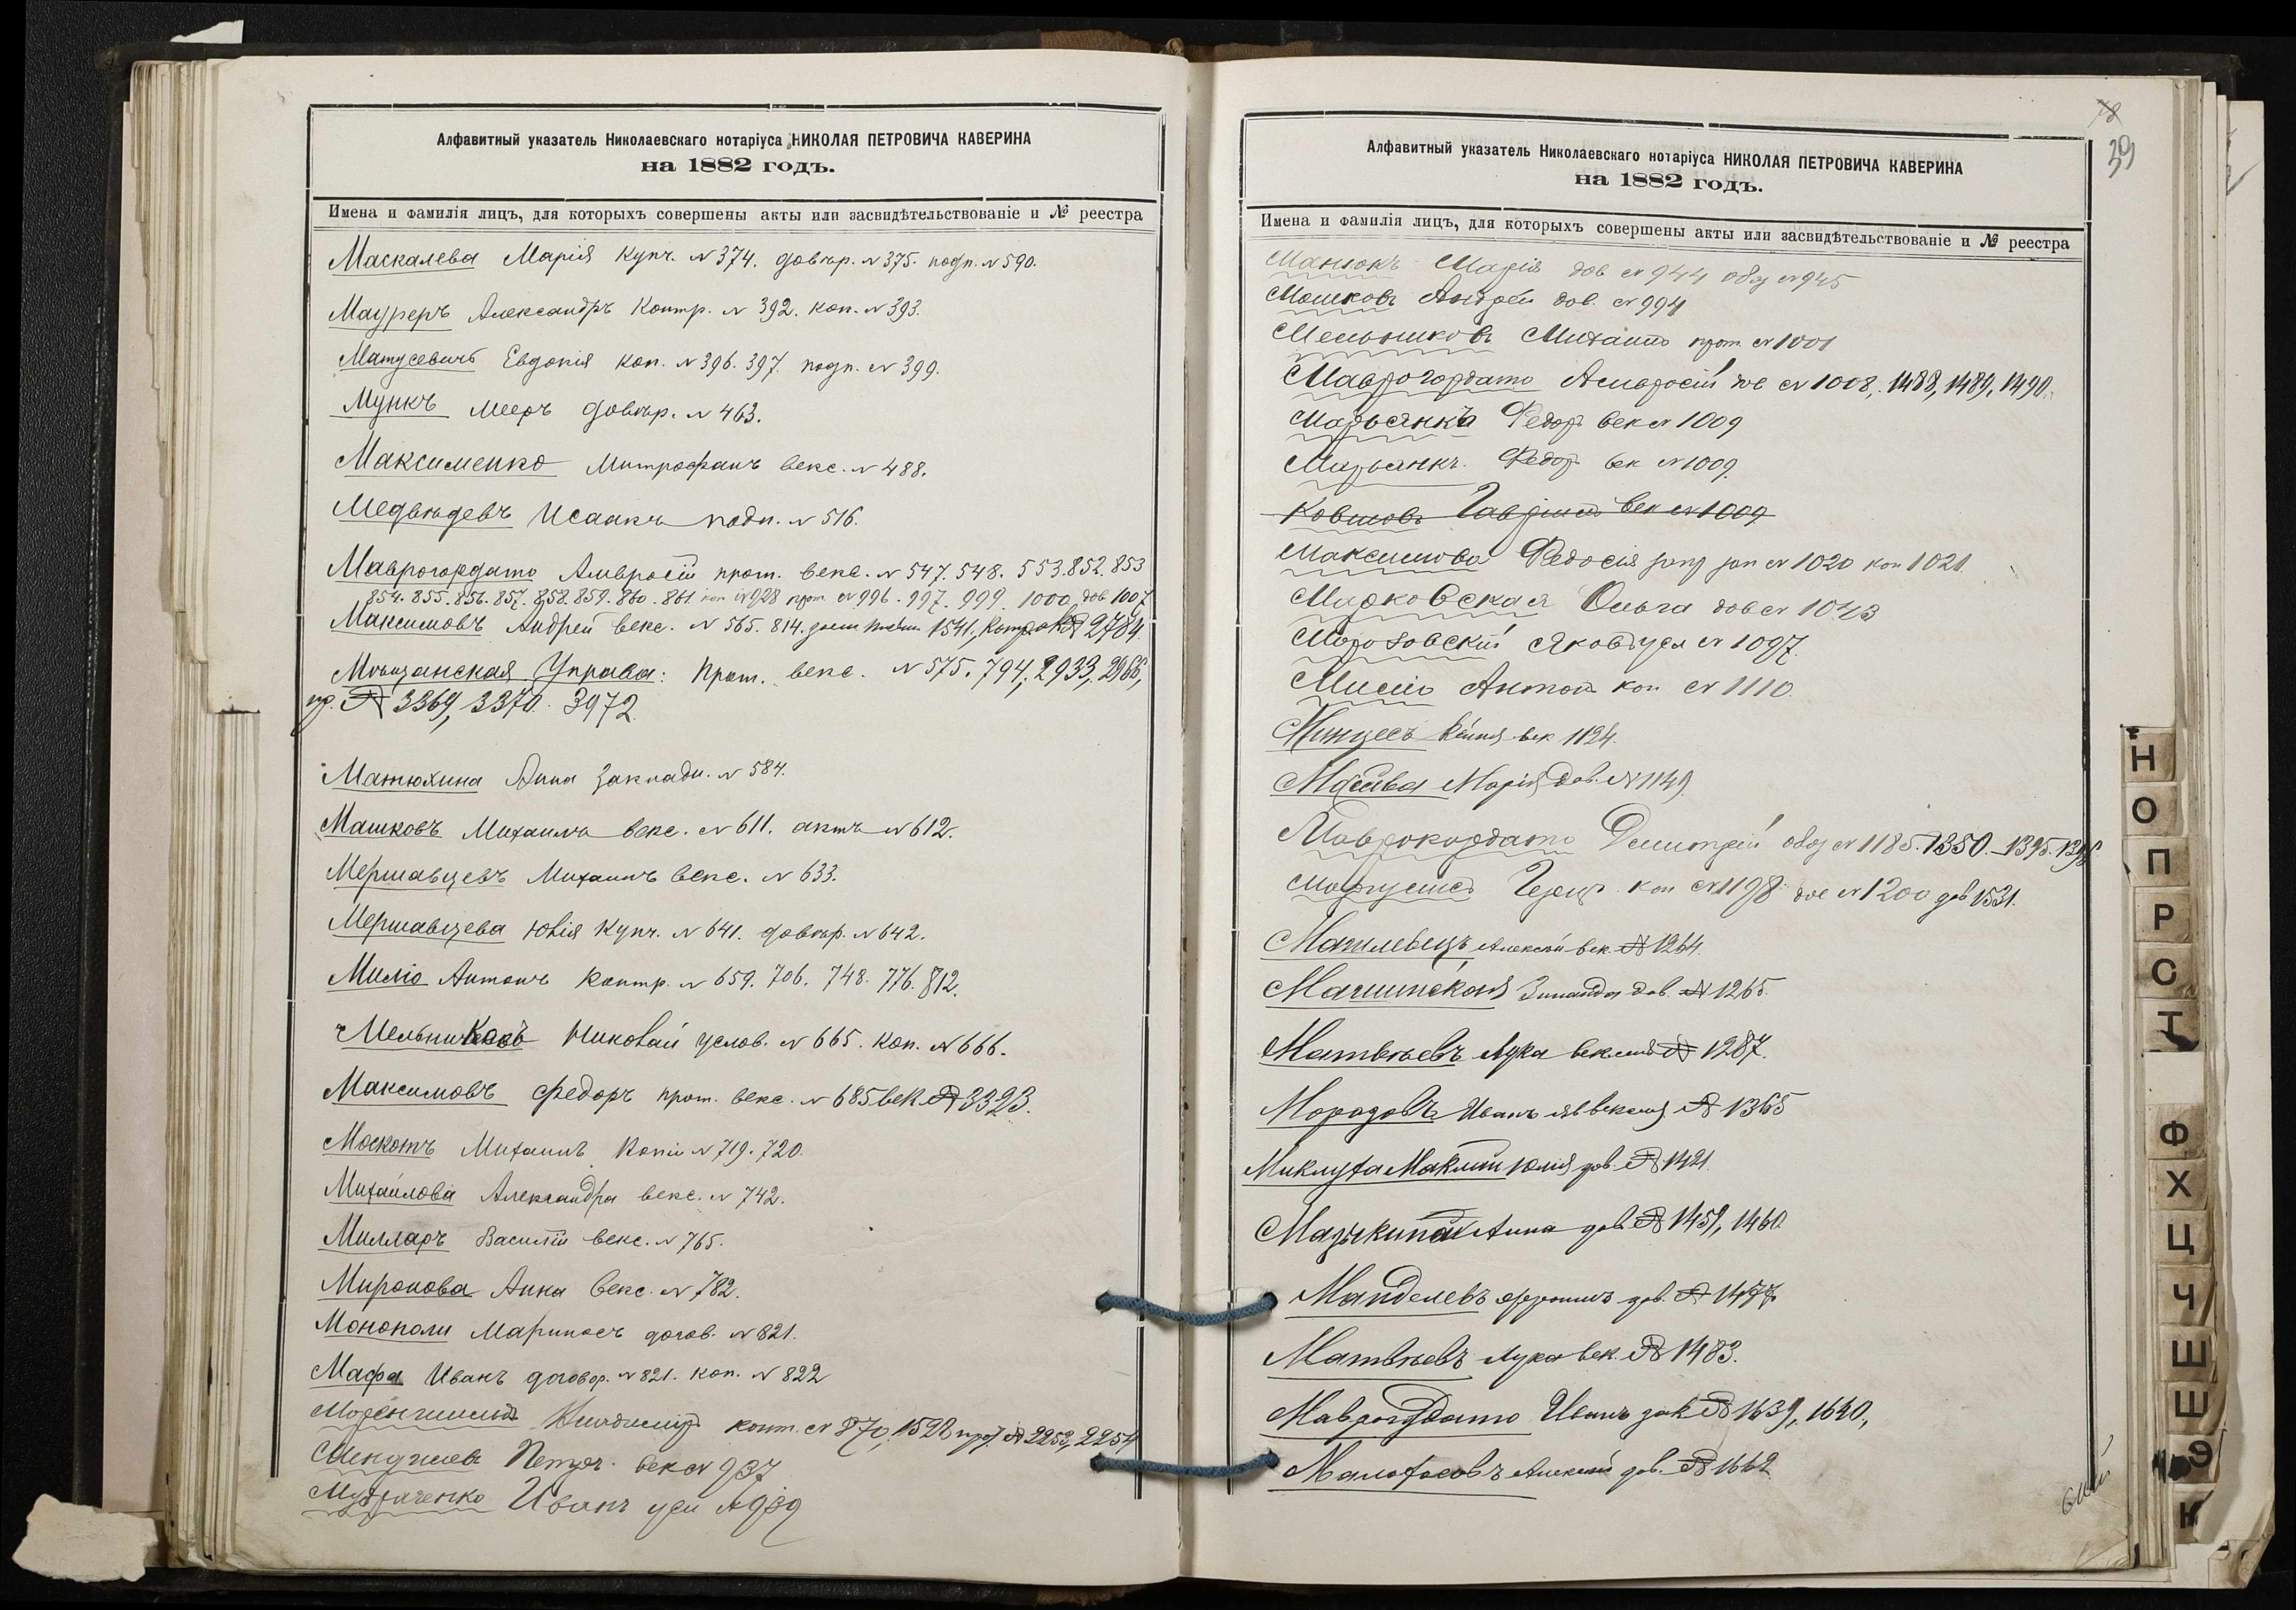 Алфавитный указатель Николаевскаго нотаріуса НИКОЛАЯ ПЕТРОВИЧА КАВЕРИНА
на 1882 годъ.
Имена и фамилія лицъ, для которыхъ совершены акты или засвидѣтельствованіе и № реестра
Маскалева Марія купч. № 374. довѣр. № 375. подп. № 590.
Мауреръ Александръ контр. № 392. коп. № 393.
Матусевичъ Евдокія коп. № 396. 397. подп. № 399.
Мункъ Мееръ довѣр. № 463.
Максименко Митрофанъ векс. № 488.
Медвѣдевъ Исаакъ подп. № 516.
Маврогордато Амвросій прот. векс. № 547. 548. 553. 852. 853
854. 855. 856. 857. 858. 859. 860. 861. коп № 928 прот № 996. 997. 999. 1000. дов 1007
Максимовъ Андрей векс. № 565. 814. 1541, № 2784.
Мѣщанская Управа: Прот. векс. № 575. 794, 2933, 2966,
пр. № 3369, 3370. 3972.
Матюхина Анна закладн. № 584.
Машковъ Михаилъ векс. № 611. актъ № 612.
Мершавцевъ Михаилъ векс. № 633.
Мершавцева Юлія купч. № 641. довѣр. № 642.
Миліо Антонъ контр. № 659. 706. 748. 776. 812.
Мельниковъ Николай услов. № 665. коп. № 666.
Максимовъ Федоръ прот. векс. № 685 век № 3323.
Москотъ Михаилъ копіи № 719. 720.
Михайлова Александра векс. № 742.
Милларъ Василій векс. № 765.
Миронова Анна векс. № 782.
Монополи Мариносъ догов. № 821.
Мафа Иванъ договор. № 821. коп. № 822
конт. № 870, 1592 № 2252, 2254
Петръ век № 937
Иванъ усл № 939
39
Алфавитный указатель Николаевскаго нотаріуса НИКОЛАЯ ПЕТРОВИЧА КАВЕРИНА
на 1882 годъ.
Имена и фамилія лицъ, для которыхъ совершены акты или засвидѣтельствованіе и № реестра
Манюкъ Марія дов № 944 обяз № 945
Мошковъ Андрей дов. № 994
Мельниковъ Михаилъ прот № 1001
Маврогордато Амвросій дов № 1008, 1488, 1489, 1490.
Марьянка Федор век № 1009
Марьянкъ Федор век № 1009
Ковшовъ Гавріилъ век № 1009
Максимова Федосія № 1020 коп 1021.
Марковская Ольга дов № 1043
Морозовскій Яковъ усл № 1097.
Миліо Антон коп № 1110.
Минцесъ век 1124.
Марія дов. № 1149
Маврокордато Демитрей обяз № 1185. 1350. 1395. 1396.
коп № 1198 дов № 1200 дов 1531.
Алексѣй век. № 1264.
Зинаида дов. № 1265.
Матвѣевъ Лука № 1287.
Морозовъ Иванъ № 1365
Миклуха Маклай Юлія дов. № 1421.
Мазыкина Анна дов. № 1459, 1460.
Манделевъ дов. № 1477
Матвѣевъ Лука век. № 1483.
Маврогордато Иванъ зак № 1639, 1640,
Малофеевъ Алексѣй дов. № 1662
Н
О
П
Р
С
Т
Ф
Х
Ц
Ч
Ш
Ш
Э
К